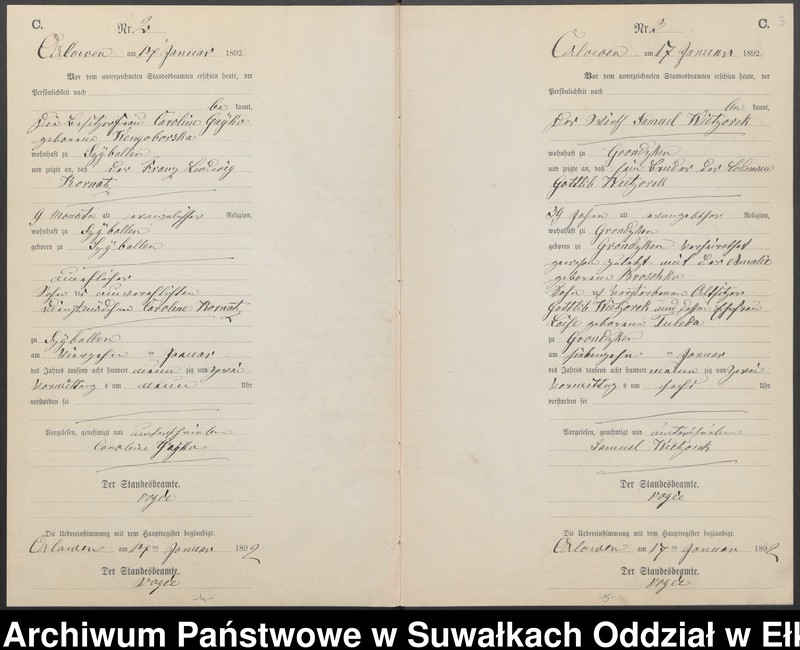 C.
Nr. 2
Orlowen am 17 Januar 1892.
Vor dem unterzeichneten Standesbeamten erschien heute, der
Persönlichkeit nach
be kannt,
die Besitzerfrau Caroline Gayko
geborene
wohnhaft zu Szyballen
und zeigte an, daß der Franz Ludwig
Kornatz
9 Monate alt evangelischer Religion,
wohnhaft zu Szyballen
geboren zu Szyballen
unehelicher
Sohn der unverehelichten
Dienstmädchen Caroline Kornatz
zu Szyballen
am vierzehn ten Januar
des Jahres tausend acht hundert neun zig und zwei
Vormittags um neun Uhr
verstorben sei
Vorgelesen, genehmigt und unterschrieben
Caroline Gayko
Der Standesbeamte.
Vogée
Die Uebereinstimmung mit dem Hauptregister beglaubigt.
Orlowen am 17 ten Januar 1892
Der Standesbeamte.
Vogée
-4-
C. 3
Nr. 3
Orlowen am 17 Januar 1892.
Vor dem unterzeichneten Standesbeamten erschien heute, der
Persönlichkeit nach
be kannt,
der Wirth Samuel Wietzorek
wohnhaft zu Grondzken
und zeigte an, daß sein Bruder der
Gottlieb Wietzorek
39 Jahre alt evangelischer Religion,
wohnhaft zu Grondzken
geboren zu Grondzken verheirathet
gewesen zuletzt mit der Amalie
geborene Broschka
Sohn des verstorbenen Altsitzer
Gottlieb Wietzorek und dessen Ehefrau
Loise geborene Tuleka
zu Grondzken
am siebenzehn ten Januar
des Jahres tausend acht hundert neun zig und zwei
Vormittags um sechs Uhr
verstorben sei
Vorgelesen, genehmigt und unterschrieben
Samuel Wietzorek
Der Standesbeamte.
Vogée
Die Uebereinstimmung mit dem Hauptregister beglaubigt.
Orlowen am 17 ten Januar 1892
Der Standesbeamte.
Vogée
-5-
Archiwum Państwowe w Suwałkach Oddział w Ełk